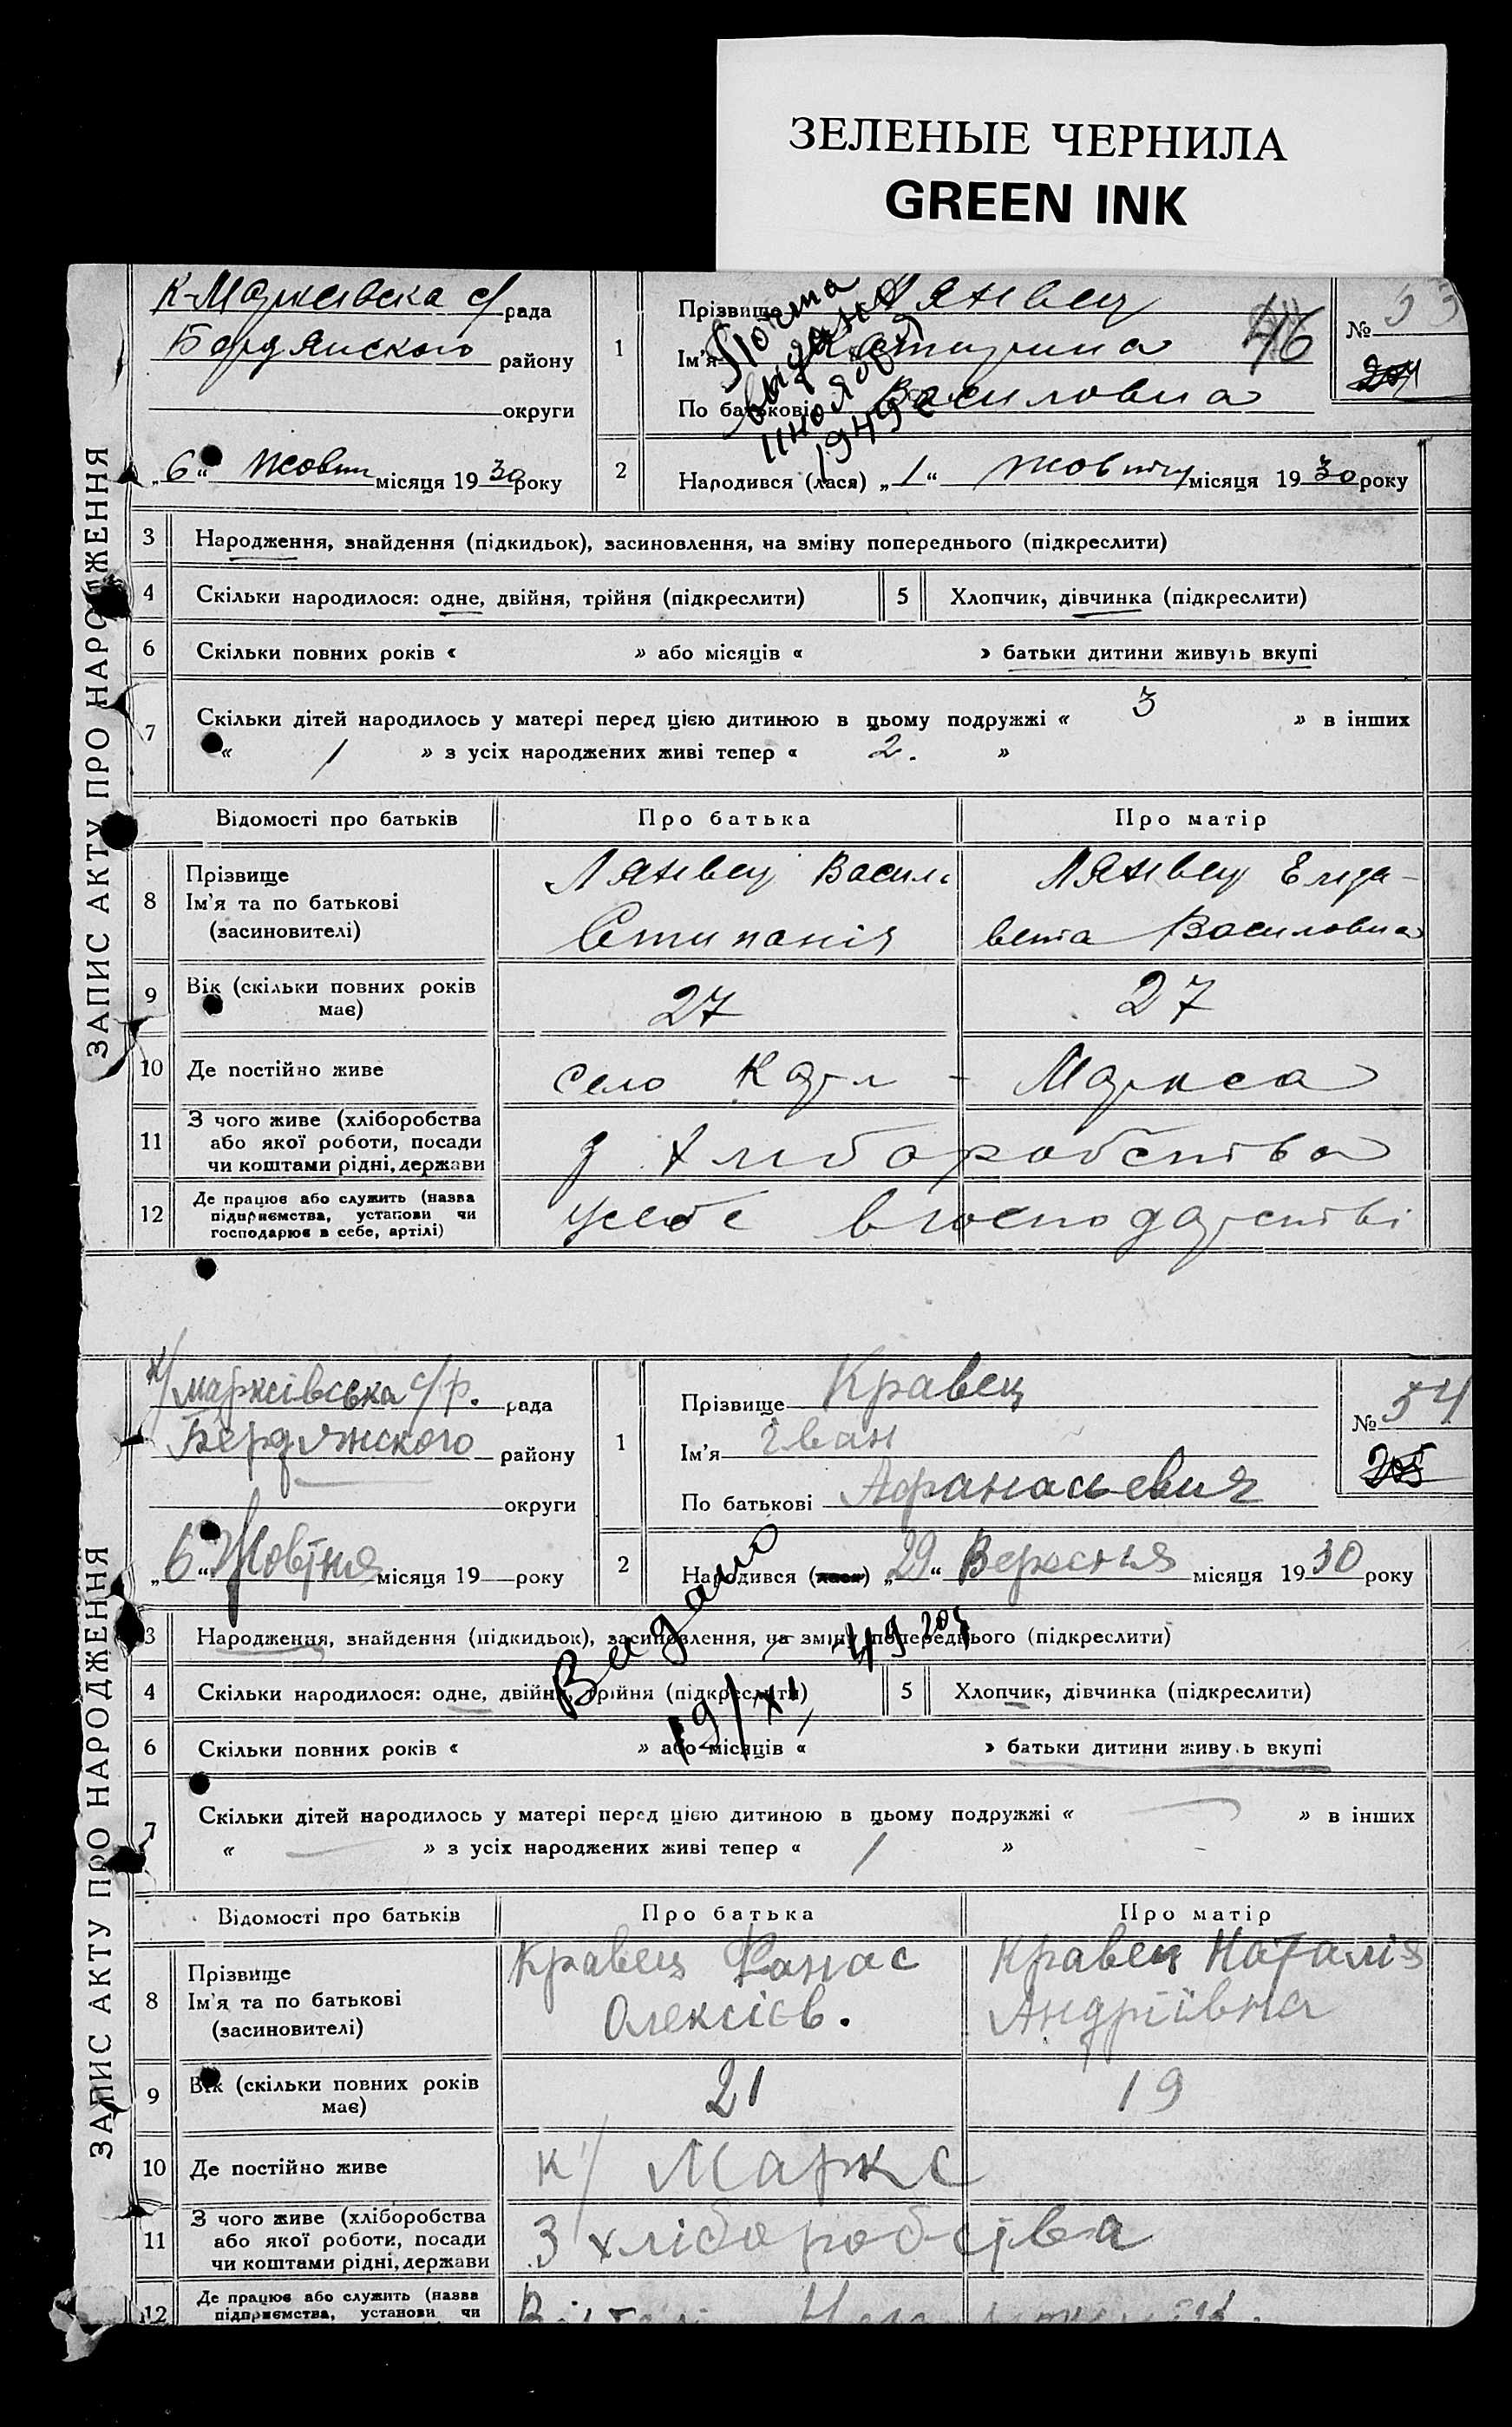 ЗЕЛЕНЫЕ ЧЕРНИЛА
GREEN INK
ЗАПИС АКТУ ПРО НАРОДЖЕННЯ
К-Марксівска с/рада
Бердянского району
округи
„6“ Жовтн місяця 1930 року
1
Прізвище Лянвец
Ім'я Катирина
По батькові Василовна
46
№ 53
204
2
Народився (лася) „1“ Жовтня місяця 1930 року
3 Народження, знайдення (підкидьок), засиновлення, на зміну попереднього (підкреслити)
4 Скільки народилося: одне, двійня, трійня (підкреслити) 5 Хлопчик, дівчинка (підкреслити)
6 Скільки повних років « » або місяців « » батьки дитини живуть вкупі
7 Скільки дітей народилось у матері перед цією дитиною в цьому подружжі « 3 » в інших
« 1 » з усіх народжених живі тепер « 2. »
Відомості про батьків Про батька Про матір
8 Прізвище
Ім'я та по батькові
(засиновителі)
Лянвец Василь
Лянвец Елиза-
вета Василовна
9 Вік (скільки повних років
має)
27 27
10 Де постійно живе село Карл - Маркса
11 З чого живе (хліборобства
або якої роботи, посади
чи коштами рідні, держави
з хліборобства
12 Де працює або служить (назва
підприємства, установи чи
господарює в себе, артілі)
усебе в господарстві
ЗАПИС АКТУ ПРО НАРОДЖЕННЯ
К/марксівська с/р. рада
Бердянского району
округи
„6“ Жовтня місяця 19 року
1
Прізвище Кравец
Ім'я Іван
По батькові Афанасьевич
№ 54
205
2
Народився (лася) „29“ Вересня місяця 1930 року
Видано
19/XI 49
3 Народження, знайдення (підкидьок), засиновлення, на зміну попереднього (підкреслити)
4 Скільки народилося: одне, двійня, трійня (підкреслити) 5 Хлопчик, дівчинка (підкреслити)
6 Скільки повних років « » або місяців « » батьки дитини живуть вкупі
7 Скільки дітей народилось у матері перед цією дитиною в цьому подружжі « — » в інших
« — » з усіх народжених живі тепер « 1 »
Відомості про батьків Про батька Про матір
8 Прізвище
Ім'я та по батькові
(засиновителі)
Кравец Фанас
Олексієв.
Кравец Наталія
Андріївна
9 Вік (скільки повних років
має)
21 19
10 Де постійно живе К/ Маркс
11 З чого живе (хліборобства
або якої роботи, посади
чи коштами рідні, держави
З хліборобства
12 Де працює або служить (назва
підприємства, установи чи